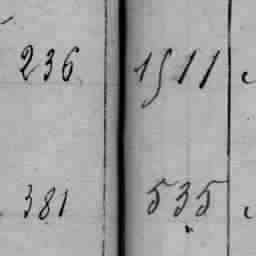 236 1511
381 535